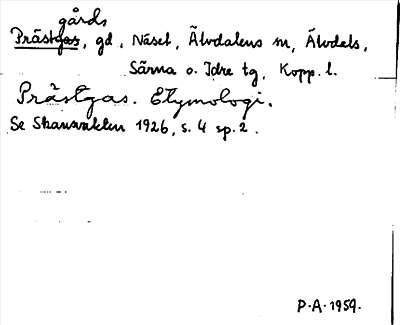 gårds
Prästgas, gd, Näset, Älvdalens sn, Älvdals,
Särna o. Idre tg, Kopp. l.
Prästgas. Etymologi.
Se Skansvakten 1926, s. 4 sp. 2.
P.A. 1959.